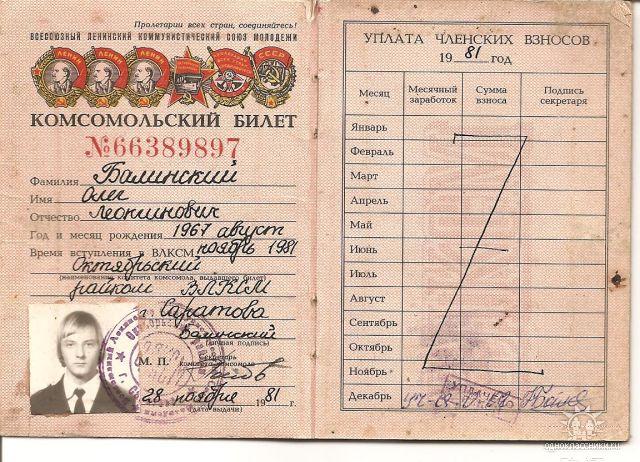 Пролетарии всех стран, соединяйтесь!
ВСЕСОЮЗНЫЙ ЛЕНИНСКИЙ КОММУНИСТИЧЕСКИЙ СОЮЗ МОЛОДЕЖИ
ЛЕНИН ЛЕНИН ЛЕНИН СССР
КОМСОМОЛЬСКИЙ БИЛЕТ
№66389897
Фамилия Балинский
Имя Олег
Отчество Леонинович
Год и месяц рождения 1967 август
Время вступления в ВЛКСМ ноябрь 1981
Октябрьский
(наименование комитета комсомола, выдавшего билет)
райком ВЛКСМ
г. Саратова
Балинский
(личная подпись)
М. П. Секретарь
комитета комсомола
28 ноября 1981 г.
(дата выдачи)
УПЛАТА ЧЛЕНСКИХ ВЗНОСОВ
1981 год
Месяц Месячный заработок Сумма взноса Подпись секретаря
Январь
Февраль
Март
Апрель
Май
Июнь
Июль
Август
Сентябрь
Октябрь
Ноябрь
Декабрь
одноклассники.ru